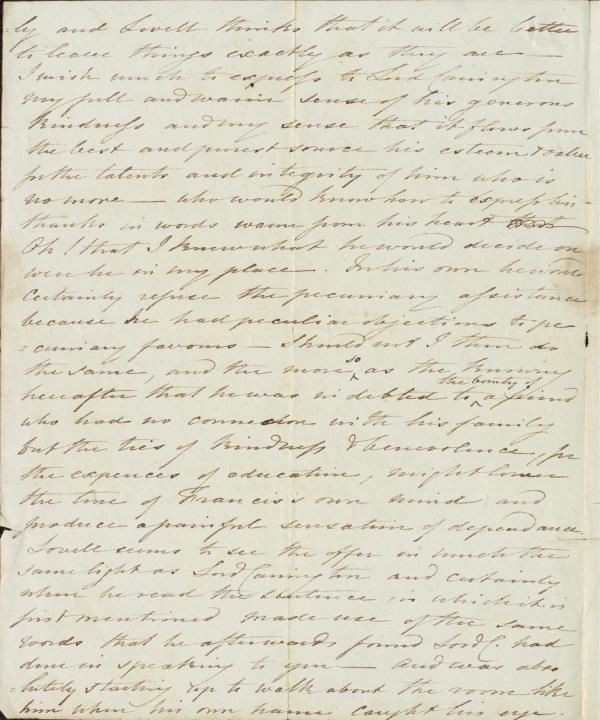 =ly and Lovell thinks that it will be better
to leave things exactly as they are —
I wish much to express to Lord Carrington
my full and warm sense of his generous
kindness and my sense that it flows from
the best and purest source his esteem & value
for the talents and integrity of him who is
no more — who would know how to express his
thanks in words warm from his heart
Oh! that I knew what he would decide on
were he in my place. In his own he would
certainly refuse the pecuniary assistance
because he had peculiar objections to pe
=cuniary favours — Should not I then do
the same, and the more so as the knowing
hereafter that he was indebted to the bounty of a friend
who had no connection with his family
but the ties of kindness & benevolence, for
the expences of education, might lower
the tone of Francis's own mind and
produce a painful sensation of dependance.
Lovell seems to see the offer in much the
same light as Lord Carrington and certainly
when he read the sentence in which it is
first mentioned made use of the same
words that he afterwards found Lord C. had
done in speaking to you — And was abso
=lutely starting up to walk about the room like
him when his own name caught his eye.